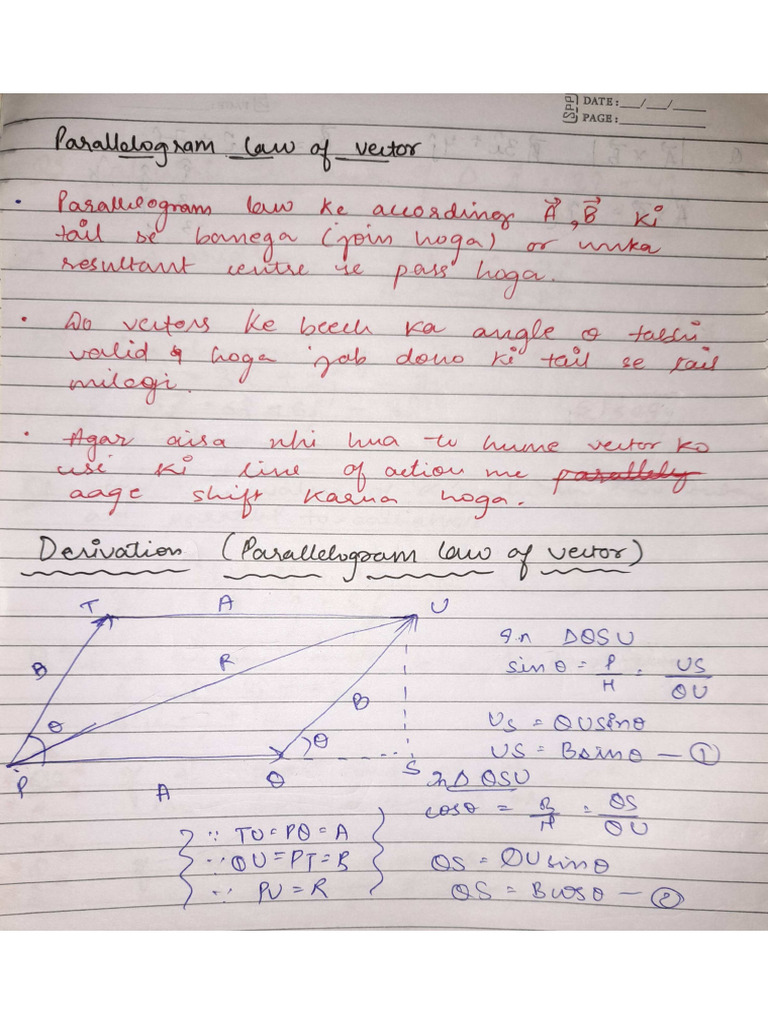 SPP
DATE: __/__/____
PAGE: ________
Parallelogram law of vector
• Parallelogram law ke according A⃗, B⃗ ki
tail se banega (join hoga) or unka
resultant centre se pass hoga.
• Do vectors ke beech ka angle θ tabhi
valid hoga jab dono ki tail se tail
milegi.
• Agar aisa nhi hua to hume vector ko
use ki line of action me parallely
aage shift karna hoga.
Derivation (Parallelogram law of vector)
T A U
B R B
θ θ
P A Q S
In ΔQSU
sinθ = P/H = US/QU
US = QUsinθ
US = Bsinθ — ①
In Δ QSU
cosθ = B/H = QS/QU
QS = QUsinθ
QS = Bcosθ — ②
∵ TU = PQ = A
∵ QU = PT = B
∵ PU = R